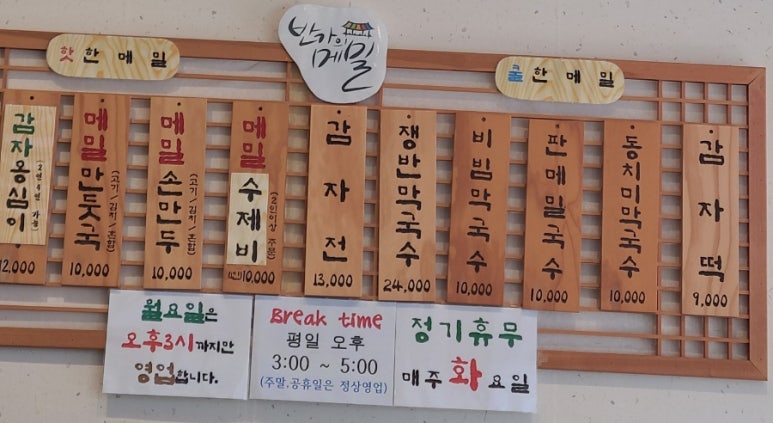 반가의
메밀
핫한메밀
쿨한메밀
감자옹심이
12,000
메밀만둣국
(고기/김치/혼합)
10,000
메밀손만두
(고기/김치/혼합)
10,000
메밀수제비
(2인이상 주문)
(1인) 10,000
감자전
13,000
쟁반막국수
24,000
비빔막국수
10,000
판메밀국수
10,000
동치미막국수
10,000
감자떡
9,000
월요일은
오후3시까지만
영업합니다.
Break time
평일 오후
3:00 ~ 5:00
(주말.공휴일은 정상영업)
정기휴무
매주 화요일